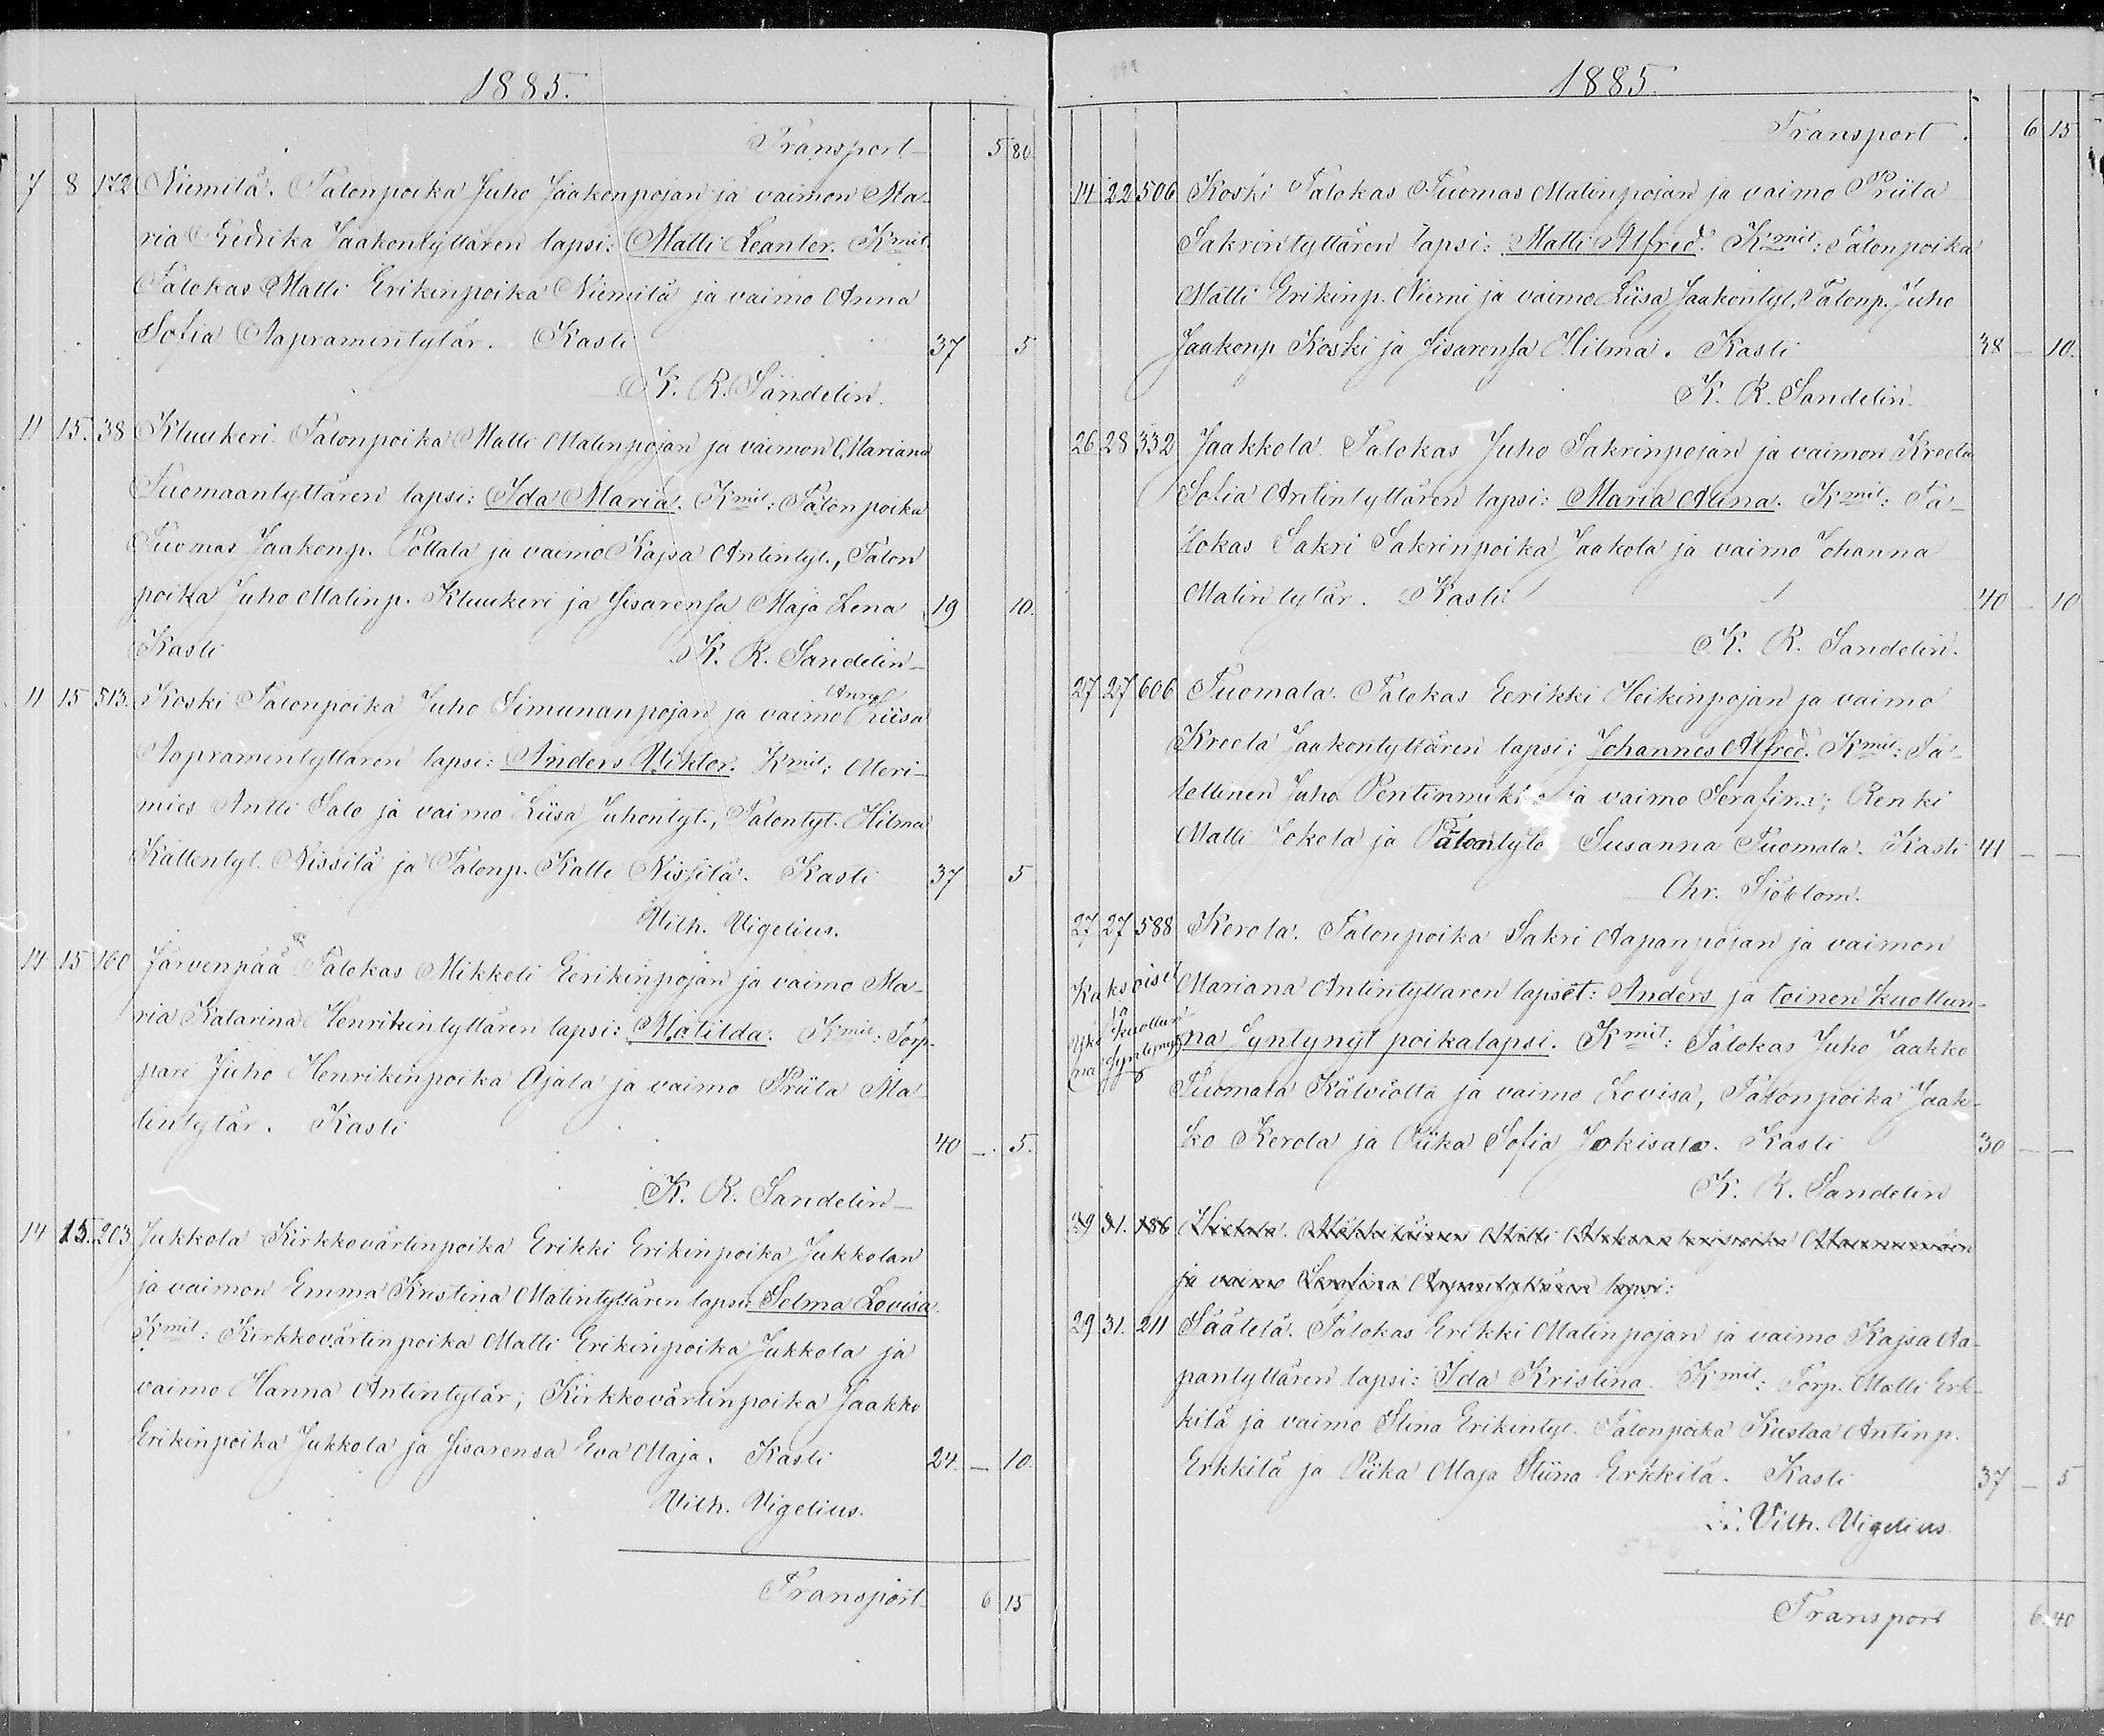 1885.
Transport 5 80.
7 8 172 Niemilä. Talonpoika Juho Jaakonpojan ja vaimon Ma-
ria Fredrika Jaakontyttären lapsi: Matti Leanter. Kmit:
Talokas Matti Erikinpoika Niemilä ja vaimo Anna
Sofia Aapramintytär. Kasti 37 5
K. R. Sandelin.
11 15. 38 Kluukeri Talonpoika Matti Matinpojan ja vaimon Mariana
Tuomaantyttären lapsi: Ida Maria. Kmit: Talonpoika
Tuomas Jaakonp. Pottala ja vaimo Kajsa Antintyt., Talon
poika Juho Matinp. Kluukeri ja sisarensa Maja Lena 19 10.
Kasti K. R. Sandelin
11 15 513. Koski Talonpoika Juho Simunanpojan ja vaimo Anna Liisa
Aapramintyttären lapsi: Anders Viktor. Kmit: Meri-
mies Antti Salo ja vaimo Liisa Juhontyt., Talontyt. Hilma
Kallentyt. Nissilä ja Talonp. Kalle Nissilä. Kasti 37 5
Vilh. Vigelius.
14 15 160 Järvenpää Talokas Mikkeli Eerikinpojan ja vaimo Ma-
ria Katarina Henrikintyttären lapsi: Matilda. Kmit: Torp-
pari Juho Henrikinpoika Ojala ja vaimo Priita Ma-
tintytär. Kasti 40 - 5.
K. R. Sandelin
14 15. 203 Jukkola Kirkkovärtinpoika Erikki Erikinpoika Jukkolan
ja vaimon Emma Kristina Matintyttären lapsi: Selma Lovisa.
Kmit: Kirkkovärtinpoika Matti Erikinpoika Jukkola ja
vaimo Hanna Antintytär; Kirkkovärtinpoika Jaakko
Erikinpoika Jukkola ja sisarensa Eva Maja. Kasti 24. - 10.
Vilh. Vigelius.
Transport 6 15
1885.
Transport. 6 15
14 22 506 Koski Talokas Tuomas Matinpojan ja vaimo Priita
Sakrintyttären lapsi: Matti Alfred. Kmit: Talonpoika
Matti Erikinp. Niemi ja vaimo Liisa Jaakontyt, Talonp. Juho
Jaakonp Koski ja sisarensa Hilma. Kasti 38 - 10.
K. R. Sandelin.
26 28 332 Jaakkola. Talokas Juho Sakrinpojan ja vaimon Kreeta
Sofia Antintyttären lapsi: Maria Alina. Kmit: Ta-
lokas Sakri Sakrinpoika Jaakola ja vaimo Johanna
Matintytär. Kasti 40 - 10
K. R. Sandelin.
27 27 606 Tuomala. Talokas Eerikki Heikinpojan ja vaimo
Kreeta Jaakontyttären lapsi: Johannes Alfred. Kmit: Ta-
lellinen Juho ja vaimo Serafina; Renki
Matti Jokela ja Talontytö Susanna Tuomala. Kasti 41 - -
Chr. Sjöblom.
27 27 588 Kerola. Talonpoika Sakri Aapanpojan ja vaimon
Kaksoiset Mariana Antintyttären lapset: Anders ja toinen kuollun-
ja yksi kuolluna syntynyt na syntynyt poikalapsi. Kmit: Talokas Juho Jaakko
Tuomala Kälviöltä ja vaimo Lovisa, Talonpoika Jaak-
ko Kerola ja Piika Sofia Jokisalo. Kasti 30 - -
K. R. Sandelin
29 31. 186 Matti
ja vaimo Serafina lapsi:
29 31. 211 Säätelä. Talokas Erikki Matinpojan ja vaimo Kajsa Aa-
pantyttären lapsi: Ida Kristina. Kmit: Torp. Matti Erk-
kilä ja vaimo Stina Erikintyt. Talonpoika Kustaa Antinp.
Erkkilä ja Piika Maja Stiina Erkkilä. Kasti 37 - 5
Vilh. Vigelius
Transport 6 40